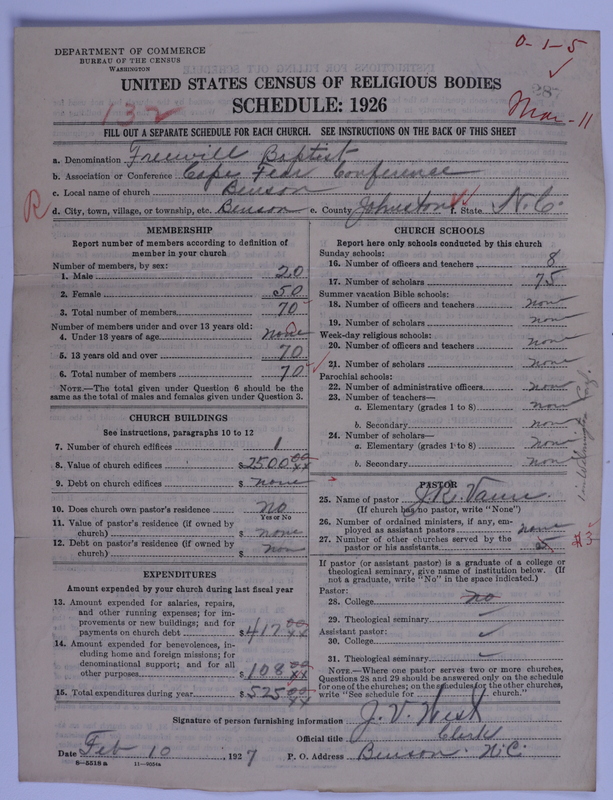 DEPARTMENT OF COMMERCE
BUREAU OF THE CENSUS
WASHINGTON
0-1-5
287
UNITED STATES CENSUS OF RELIGIOUS BODIES
SCHEDULE: 1926
132
Mar-11
FILL OUT A SEPARATE SCHEDULE FOR EACH CHURCH. SEE INSTRUCTIONS ON THE BACK OF THIS SHEET
a. Denomination Freewill Baptist
b. Association or Conference Cape Fear Conference
c. Local name of church Benson
R d. City, town, village, or township, etc. Benson e. County Johnston f. State N.C.
MEMBERSHIP
Report number of members according to definition of
member in your church
Number of members, by sex:
1. Male 20
2. Female 50
3. Total number of members 70
Number of members under and over 13 years old:
4. Under 13 years of age None
5. 13 years old and over 70
6. Total number of members 70
NOTE.—The total given under Question 6 should be the
same as the total of males and females given under Question 3.
CHURCH BUILDINGS
See instructions, paragraphs 10 to 12
7. Number of church edifices 1
8. Value of church edifices $2500 00/xx
9. Debt on church edifices $ none
10. Does church own pastor's residence no
Yes or No
11. Value of pastor's residence (if owned by
church) $ none
12. Debt on pastor's residence (if owned by
church) $ non
EXPENDITURES
Amount expended by your church during last fiscal year
13. Amount expended for salaries, repairs,
and other running expenses; for im-
provements or new buildings; and for
payments on church debt $417 00/xx
14. Amount expended for benevolences, in-
cluding home and foreign missions; for
denominational support; and for all
other purposes $108 00/xx
15. Total expenditures during year $525 00/xx
CHURCH SCHOOLS
Report here only schools conducted by this church
Sunday schools:
16. Number of officers and teachers 8
17. Number of scholars 75
Summer vacation Bible schools:
18. Number of officers and teachers non
19. Number of scholars non
Week-day religious schools:
20. Number of officers and teachers non
21. Number of scholars non
Parochial schools:
22. Number of administrative officers non
23. Number of teachers—
a. Elementary (grades 1 to 8) non
b. Secondary non
24. Number of scholars—
a. Elementary (grades 1 to 8) non
b. Secondary non
PASTOR
25. Name of pastor
(If church has no pastor, write "None")
26. Number of ordained ministers, if any, em-
ployed as assistant pastors none
27. Number of other churches served by the
pastor or his assistants 5 #3
If pastor (or assistant pastor) is a graduate of a college or
theological seminary, give name of institution below. (If
not a graduate, write "No" in the space indicated.)
Pastor:
28. College no
29. Theological seminary
Assistant pastor:
30. College
31. Theological seminary
NOTE.—Where one pastor serves two or more churches,
Questions 28 and 29 should be answered only on the schedule
for one of the churches; on the schedules for the other churches,
write "See schedule for church."
Signature of person furnishing information J. V. West
Official title Clerk
Date Feb 10, 1927 P. O. Address Benson N.C.
8-5518 a 11-9054a